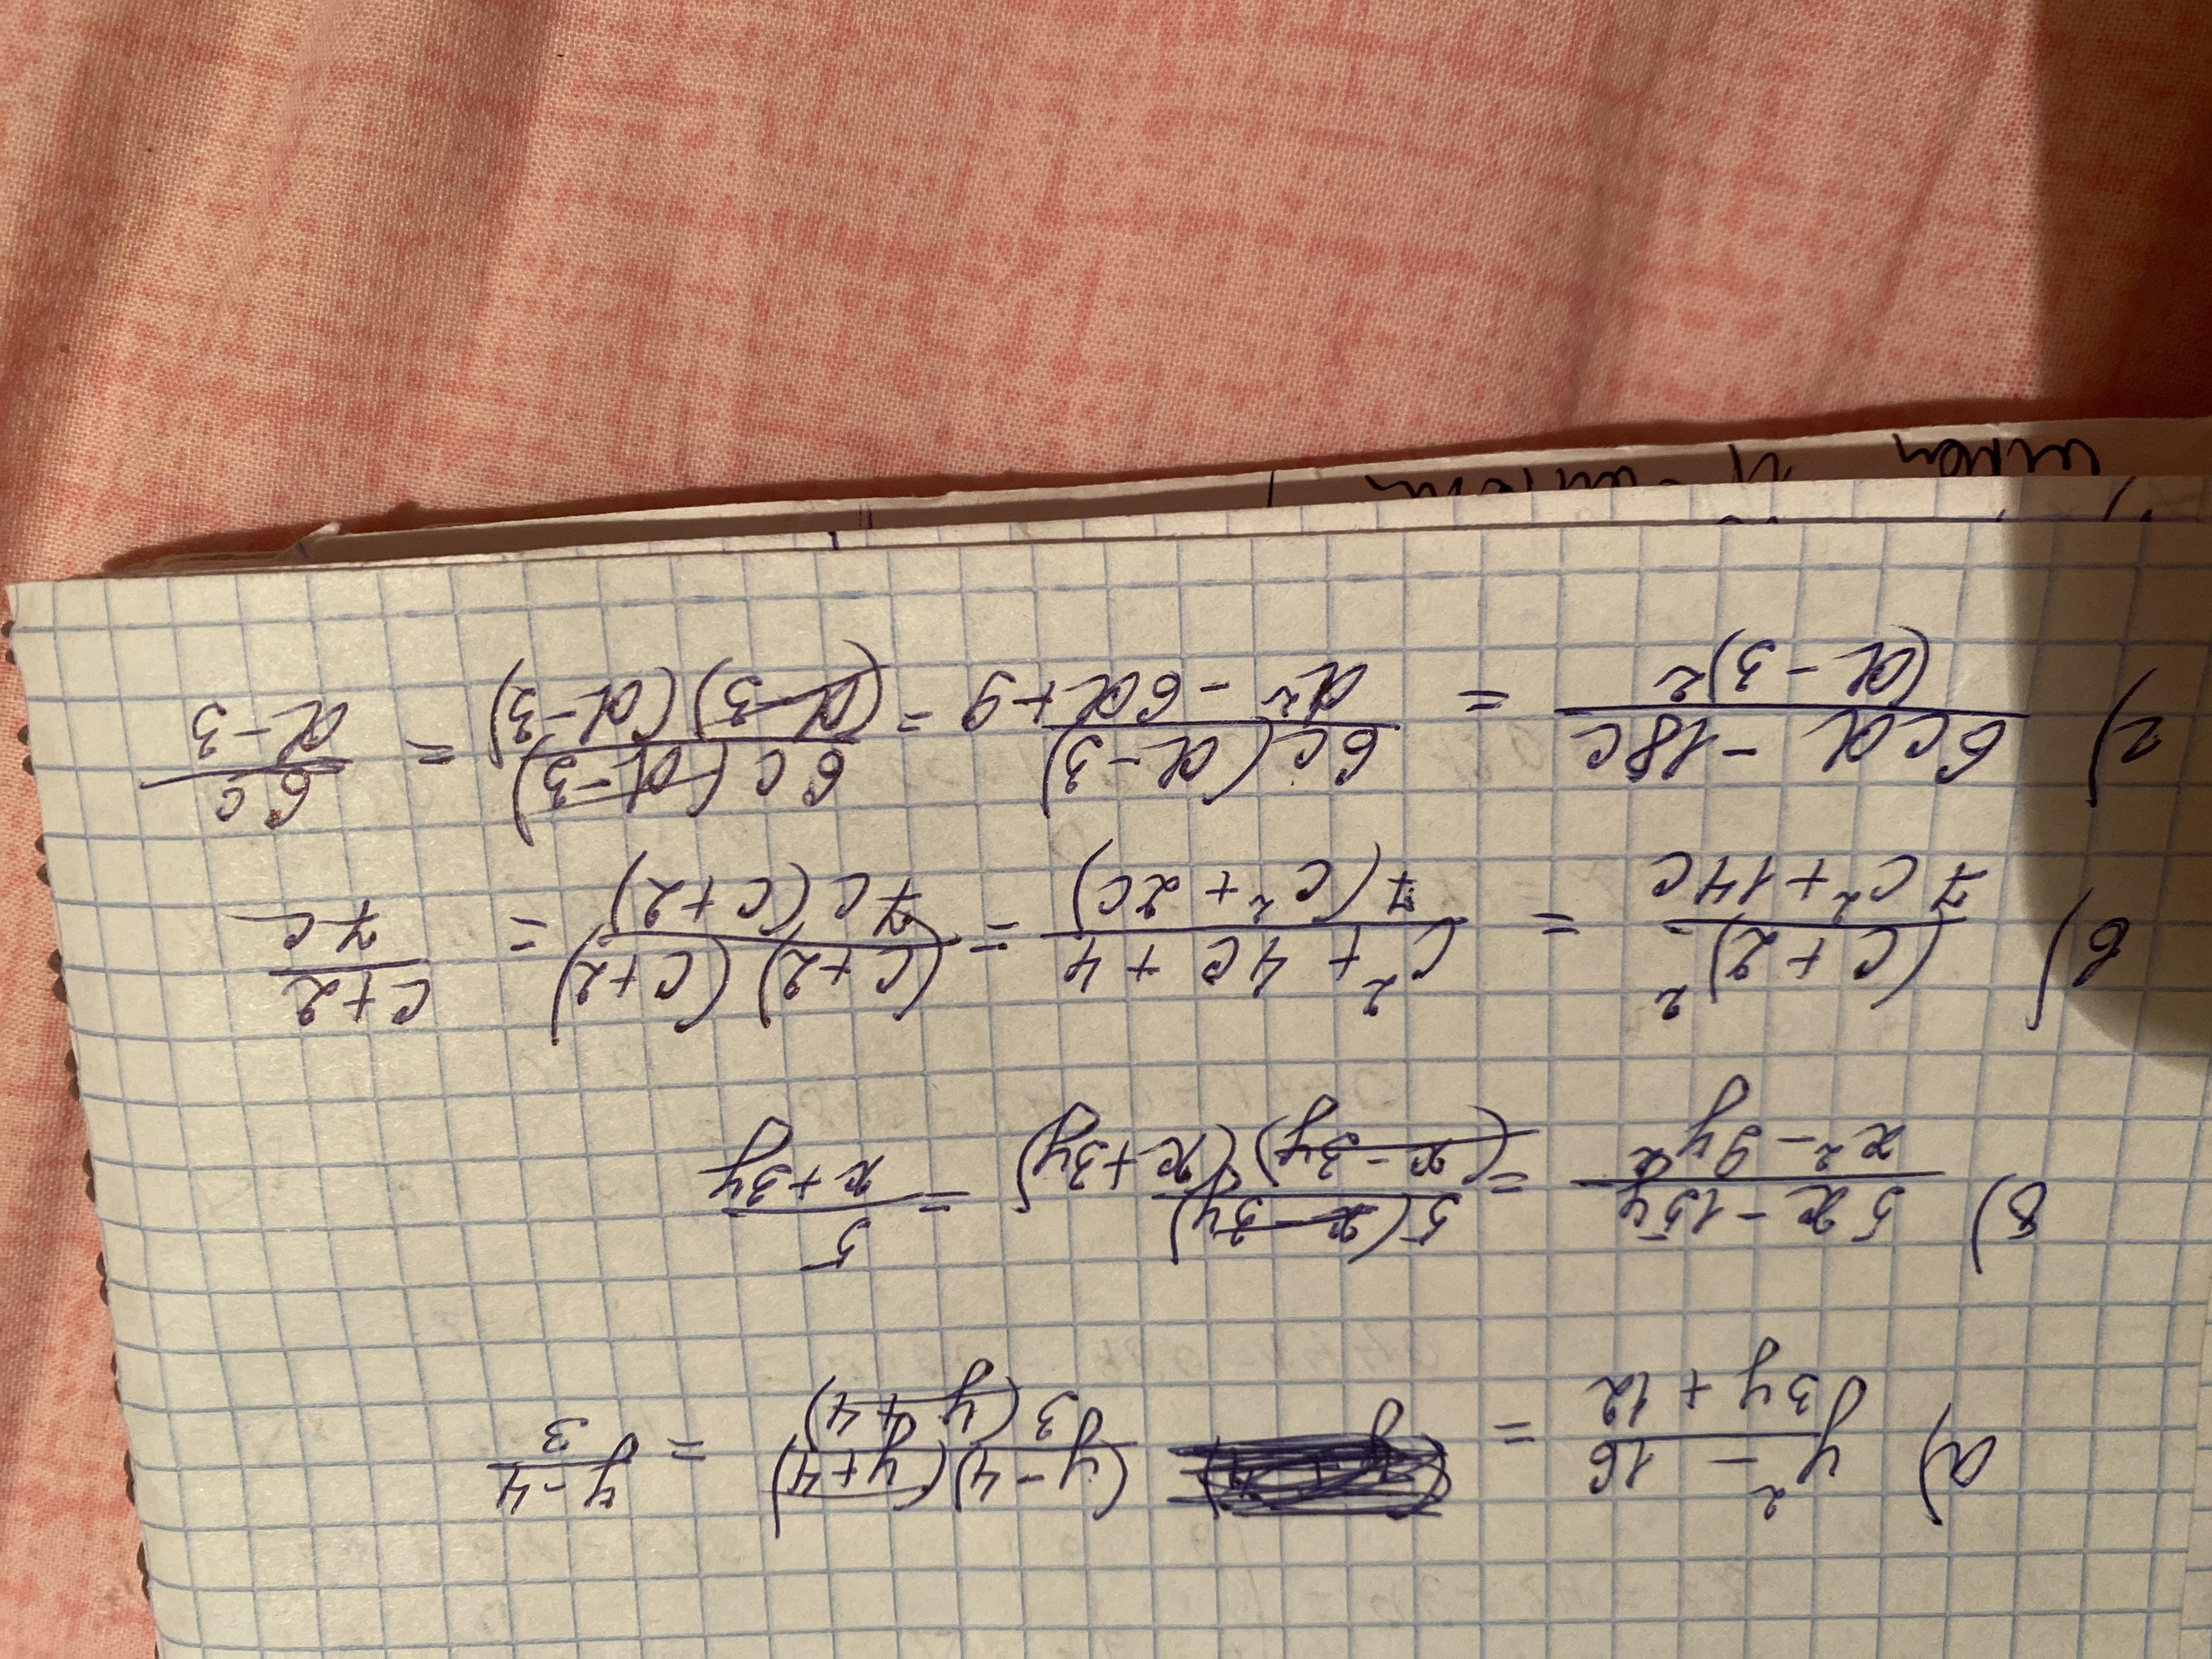 а) (y² - 16)/(3y + 12) = ((y - 4)(y + 4))/(3(y + 4)) = (y - 4)/3
б) (5x - 15y)/(x² - 9y²) = (5(x - 3y))/((x - 3y)(x + 3y)) = 5/(x + 3y)
в) (c + 2)²/(7c² + 14c) = (c² + 4c + 4)/(7(c² + 2c)) = ((c + 2)(c + 2))/(7c(c + 2)) = (c + 2)/(7c)
г) (6cd - 18c)/(d - 3)² = (6c(d - 3))/(d² - 6d + 9) = (6c(d - 3))/((d - 3)(d - 3)) = 6c/(d - 3)